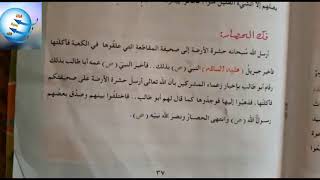 فك الحصار:
أرسل الله سبحانه حشرة الأرضة إلى صحيفة المقاطعة التي علقوها في الكعبة فأكلتها
فأخبر جبريل عليه السلام النبي (ص) بذلك .. فأخبر النبي (ص) عمه أبا طالب بذلك
فقام أبو طالب بإخبار زعماء المشركين بأن الله تعالى أرسل حشرة الأرضة على صحيفتكم
فأكلتها، فذهبوا إليها فوجدوها كما قال لهم أبو طالب .. فاختلفوا بينهم وصدق بعضهم
رسول الله (ص) وانتهى الحصار ونصر الله نبيه (ص).
٣٧